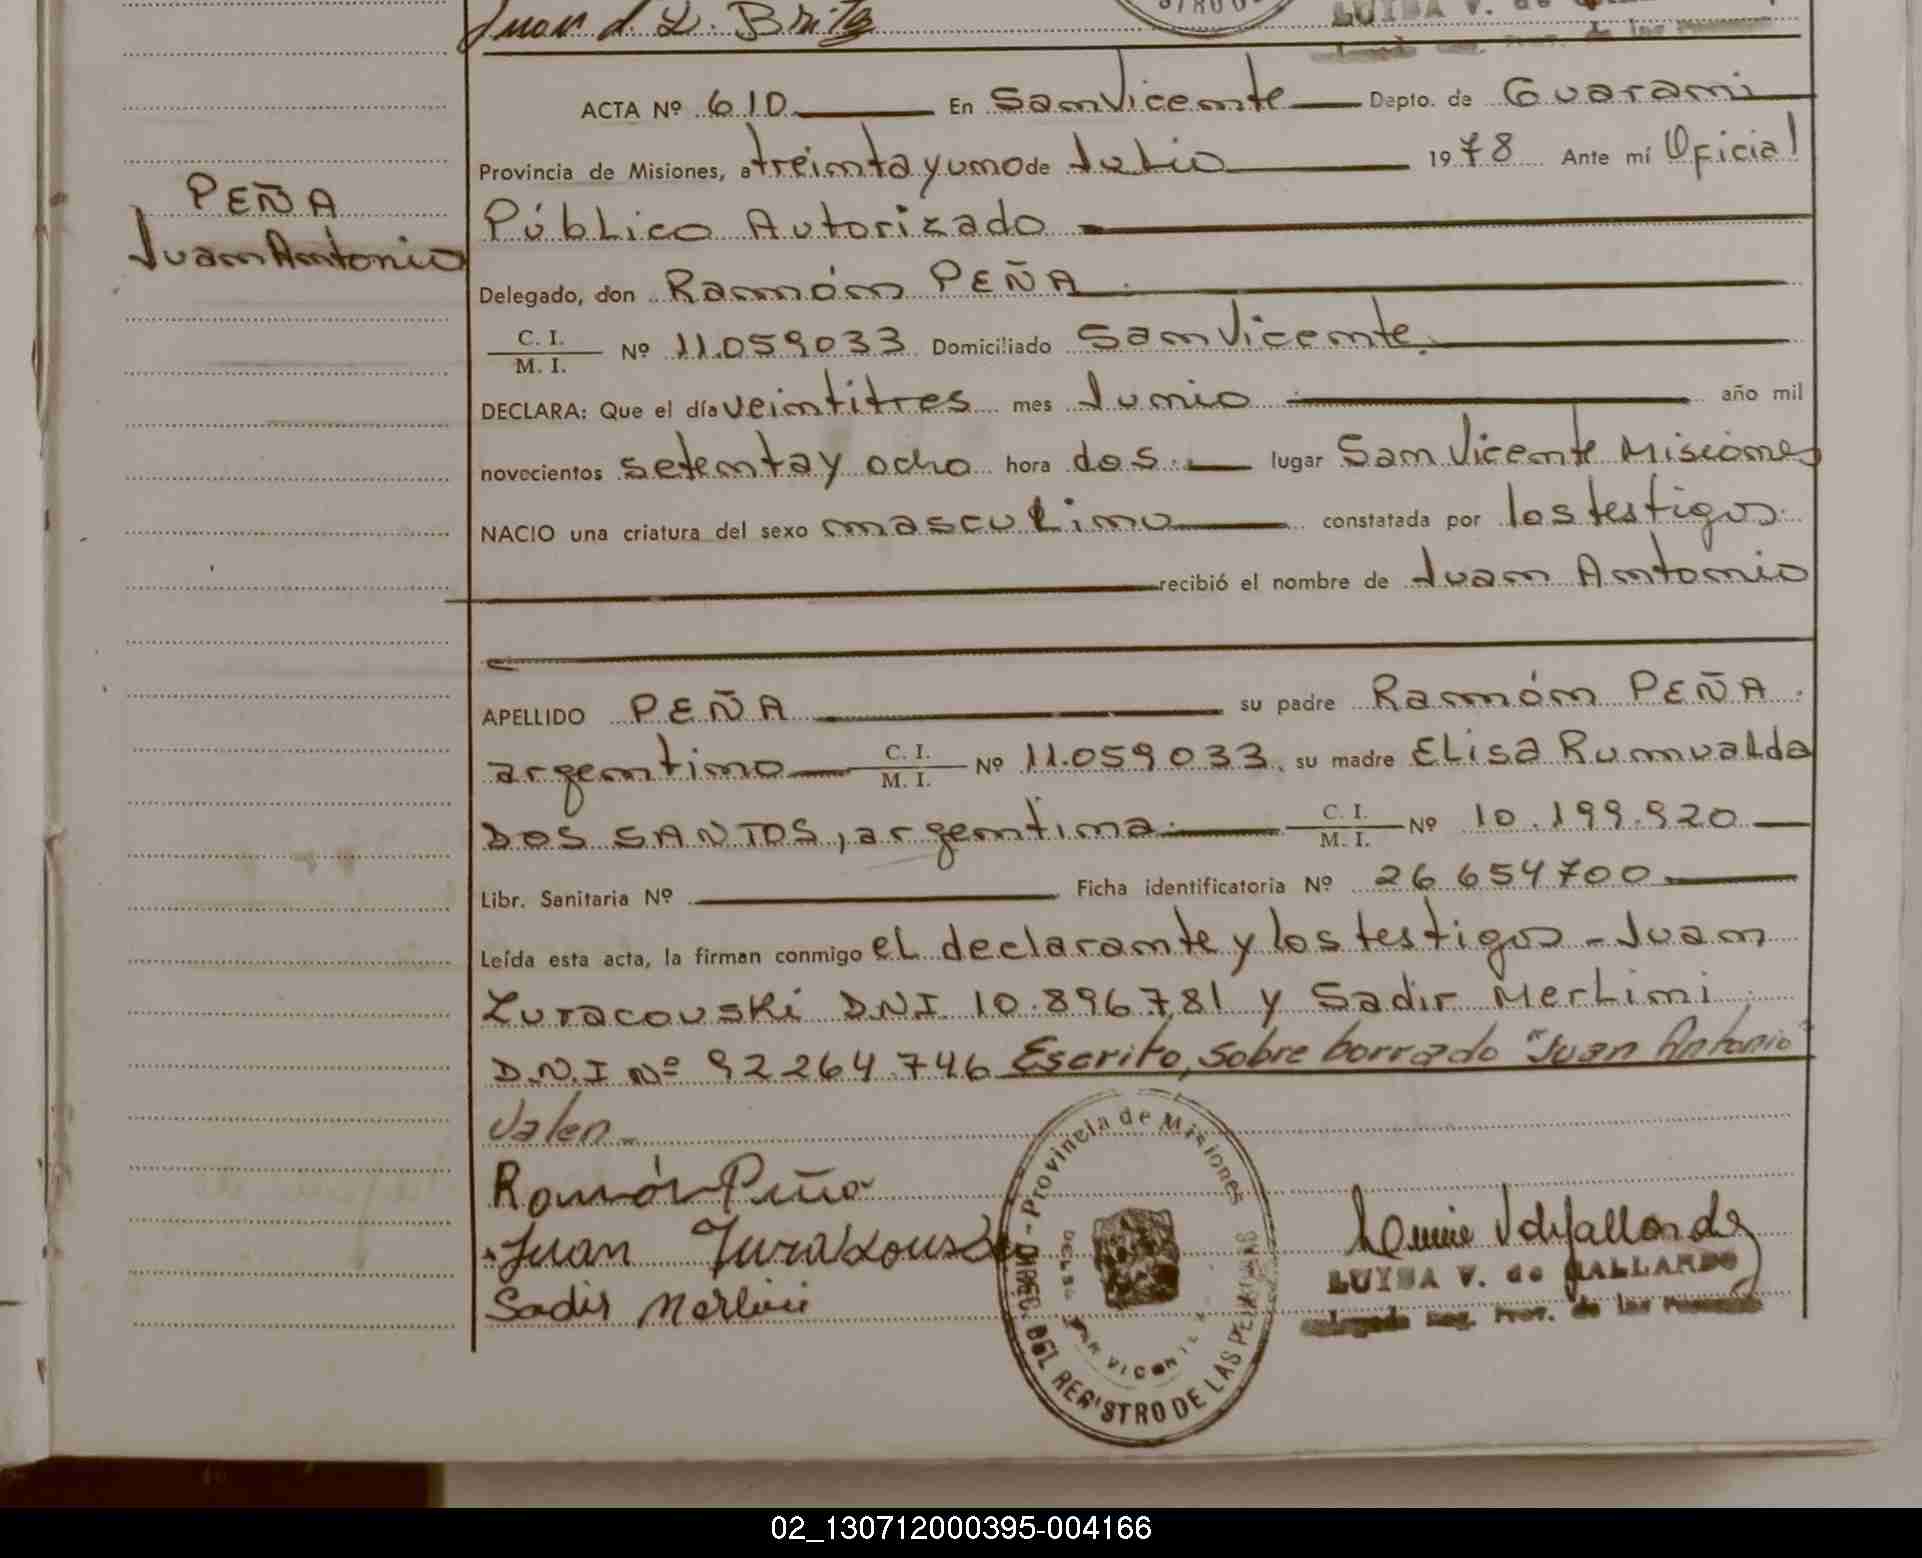 Juan d. L. Brito
LUISA V. de
ACTA Nº 610 En San Vicente Depto. de Guaraní
Provincia de Misiones, a treinta y uno de Julio 1978 Ante mí Oficial
Público Autorizado
PEÑA
Juan Antonio
Delegado, don Ramón PEÑA
C. I.
M. I. Nº 11.059033 Domiciliado San Vicente.
DECLARA: Que el día veintitres mes Junio año mil
novecientos setenta y ocho hora dos. lugar San Vicente Misiones
NACIO una criatura del sexo masculino constatada por los testigos
recibió el nombre de Juan Antonio
APELLIDO PEÑA su padre Ramón PEÑA
argentino C. I.
M. I. Nº 11.059033 su madre Elisa Rumualda
DOS SANTOS, argentina. C. I.
M. I. Nº 10.199.920
Libr. Sanitaria Nº Ficha identificatoria Nº 26 654700
Leída esta acta, la firman conmigo el declarante y los testigos - Juan
Zuracouski DNI 10.896.781 y Sadir Merlini
D.N.I Nº 92264.746 Escrito, sobre borrado "Juan Antonio"
Valen
Ramón Peña
Juan
Sadir Merlini
Provincia de Misiones
DIREC. DEL REGISTRO DE LAS PERSONAS
SAN VICENTE
LUISA V. de GALLARDO
Delegada Reg. Prov. de las Personas
02_130712000395-004166